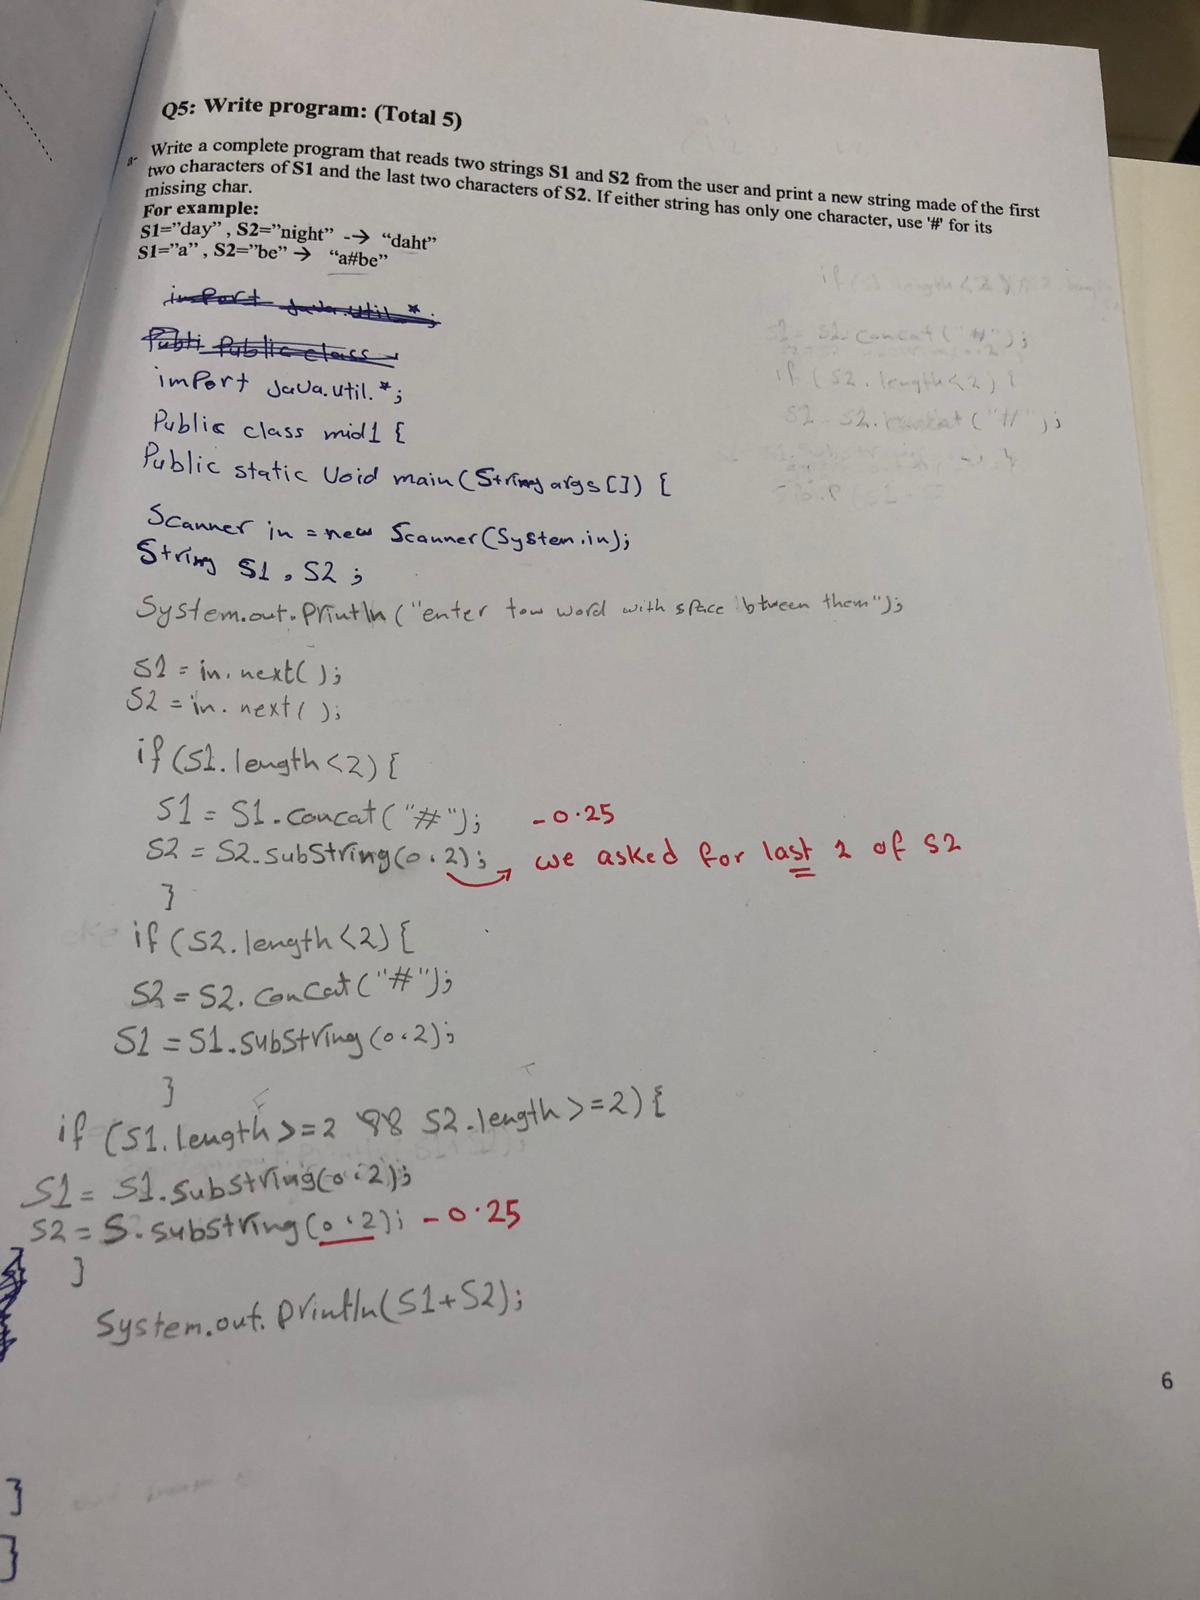 Q5: Write program: (Total 5)
a- Write a complete program that reads two strings S1 and S2 from the user and print a new string made of the first
two characters of S1 and the last two characters of S2. If either string has only one character, use '#' for its
missing char.
For example:
S1="day" , S2="night" -→ "daht"
S1="a" , S2="be" → "a#be"
import java.util.*;
Publi Public class
import java.util.*;
Public class mid1 {
Public static Void main(String args[]) {
Scanner in = new Scanner(System.in);
String S1, S2 ;
System.out.Println("enter tow word with space btween them");
S1 = in.next();
S2 = in.next();
if (S1.length<2) {
S1 = S1.concat("#"); -0.25
S2 = S2.substring(0,2); we asked for last 2 of S2
}
if (S2.length<2) {
S2 = S2.concat("#");
S1 = S1.substring(0,2);
}
if (S1.length>=2 && S2.length>=2) {
S1 = S1.substring(0,2);
S2 = S.substring(0,2); -0.25
}
System.out.println(S1+S2);
6
}
}